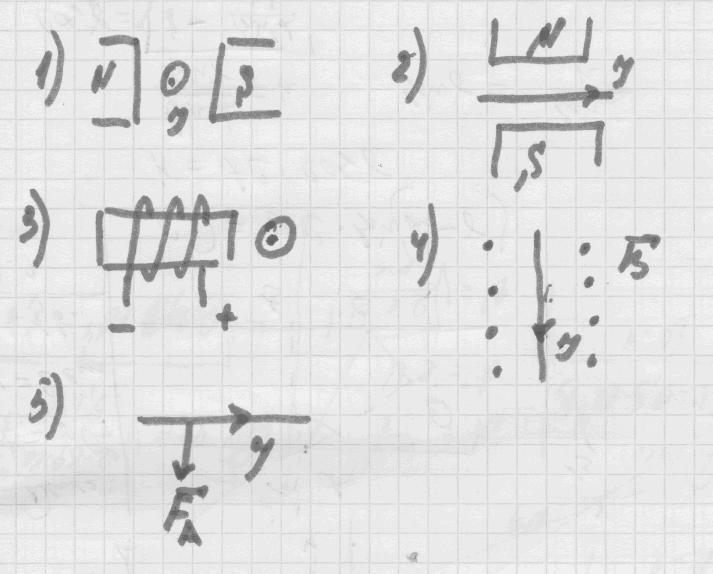 1) N S
У
2) N
У
S
3)
- +
4) B
У
5)
У
F_A